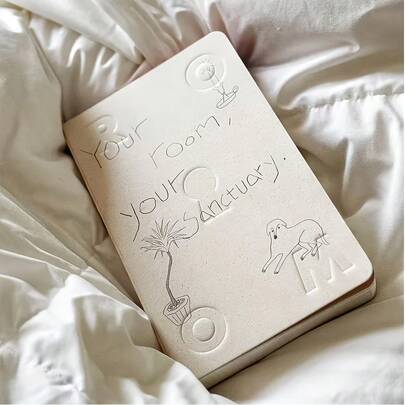 R O
Your room,
your Sanctuary.
O M